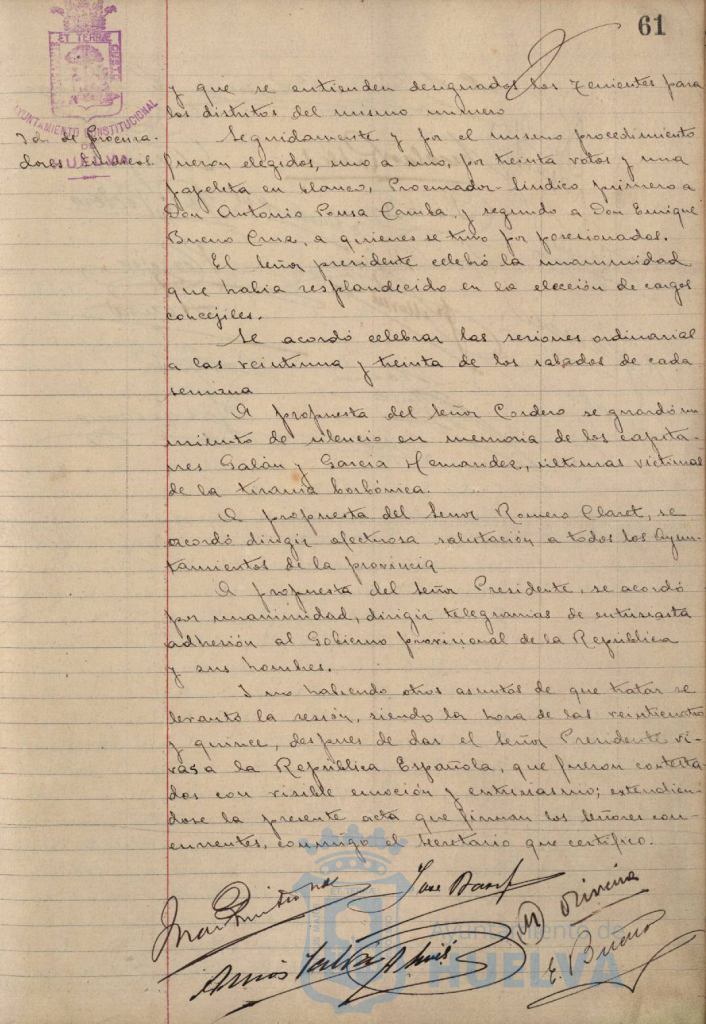 61
ET TERRÆ CUSTODIA
AYUNTAMIENTO CONSTITUCIONAL
HUELVA
Id. de Procura-
dores Síndicos.
y que se entienden designados los Tenientes para
los distritos del mismo número
Seguidamente y por el mismo procedimiento
fueron elegidos, uno a uno, por treinta votos y una
papeleta en blanco, Procurador-Síndico primero a
Don Antonio Pousa Camba, y segundo a Don Enrique
Bueno Cruz, a quienes se tuvo por posesionados.
El Señor presidente celebró la unanimidad
que había resplandecido en la elección de cargos
concejiles.
Se acordó celebrar las sesiones ordinarias
a las veintiuna y treinta de los sábados de cada
semana
A propuesta del Señor Cordero se guardó un
minuto de silencio en memoria de los capita-
nes Galán y García Hernandez, últimas víctimas
de la tiranía borbónica.
A propuesta del Señor Romero Claret, se
acordó dirigir afectuosa salutación a todos los Ayun-
tamientos de la provincia
A propuesta del Señor Presidente, se acordó
por unanimidad, dirigir telegramas de entusiasta
adhesión al Gobierno provisional de la República
y sus hombres.
Y no habiendo otros asuntos de que tratar se
levantó la sesión, siendo la hora de las veinticuatro
y quince, despues de dar el Señor Presidente vi-
vas a la República Española, que fueron contesta-
dos con visible emoción y entusiasmo; extendien-
dose la presente acta que firman los Señores con-
currentes, conmigo el Secretario que certifico.
E. Bueno
Ayuntamiento de
HUELVA